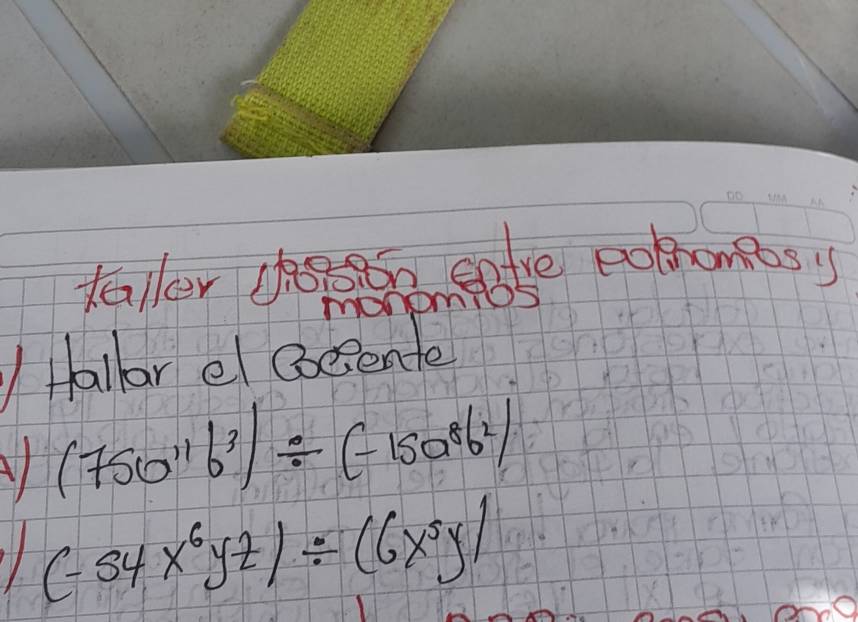 DD MM AA
taller división entre polinomios y
monomios
1) Hallar el Cociente
A) (75a¹¹b³) ÷ (-15a⁸b²)
) (-54x⁶yz) ÷ (6x⁵y)